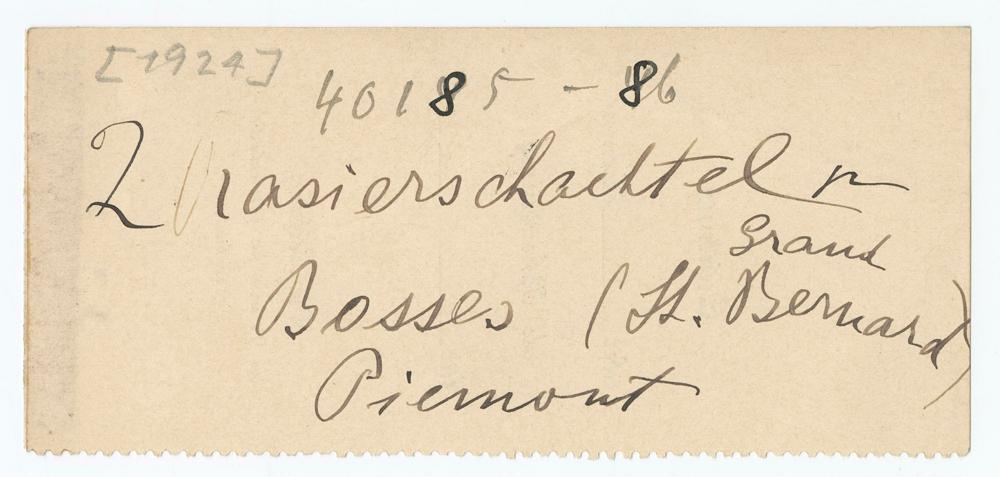 [1924]
40185-86
2 Rasierschachteln
Grand
Bosses (St. Bernard)
Piemont